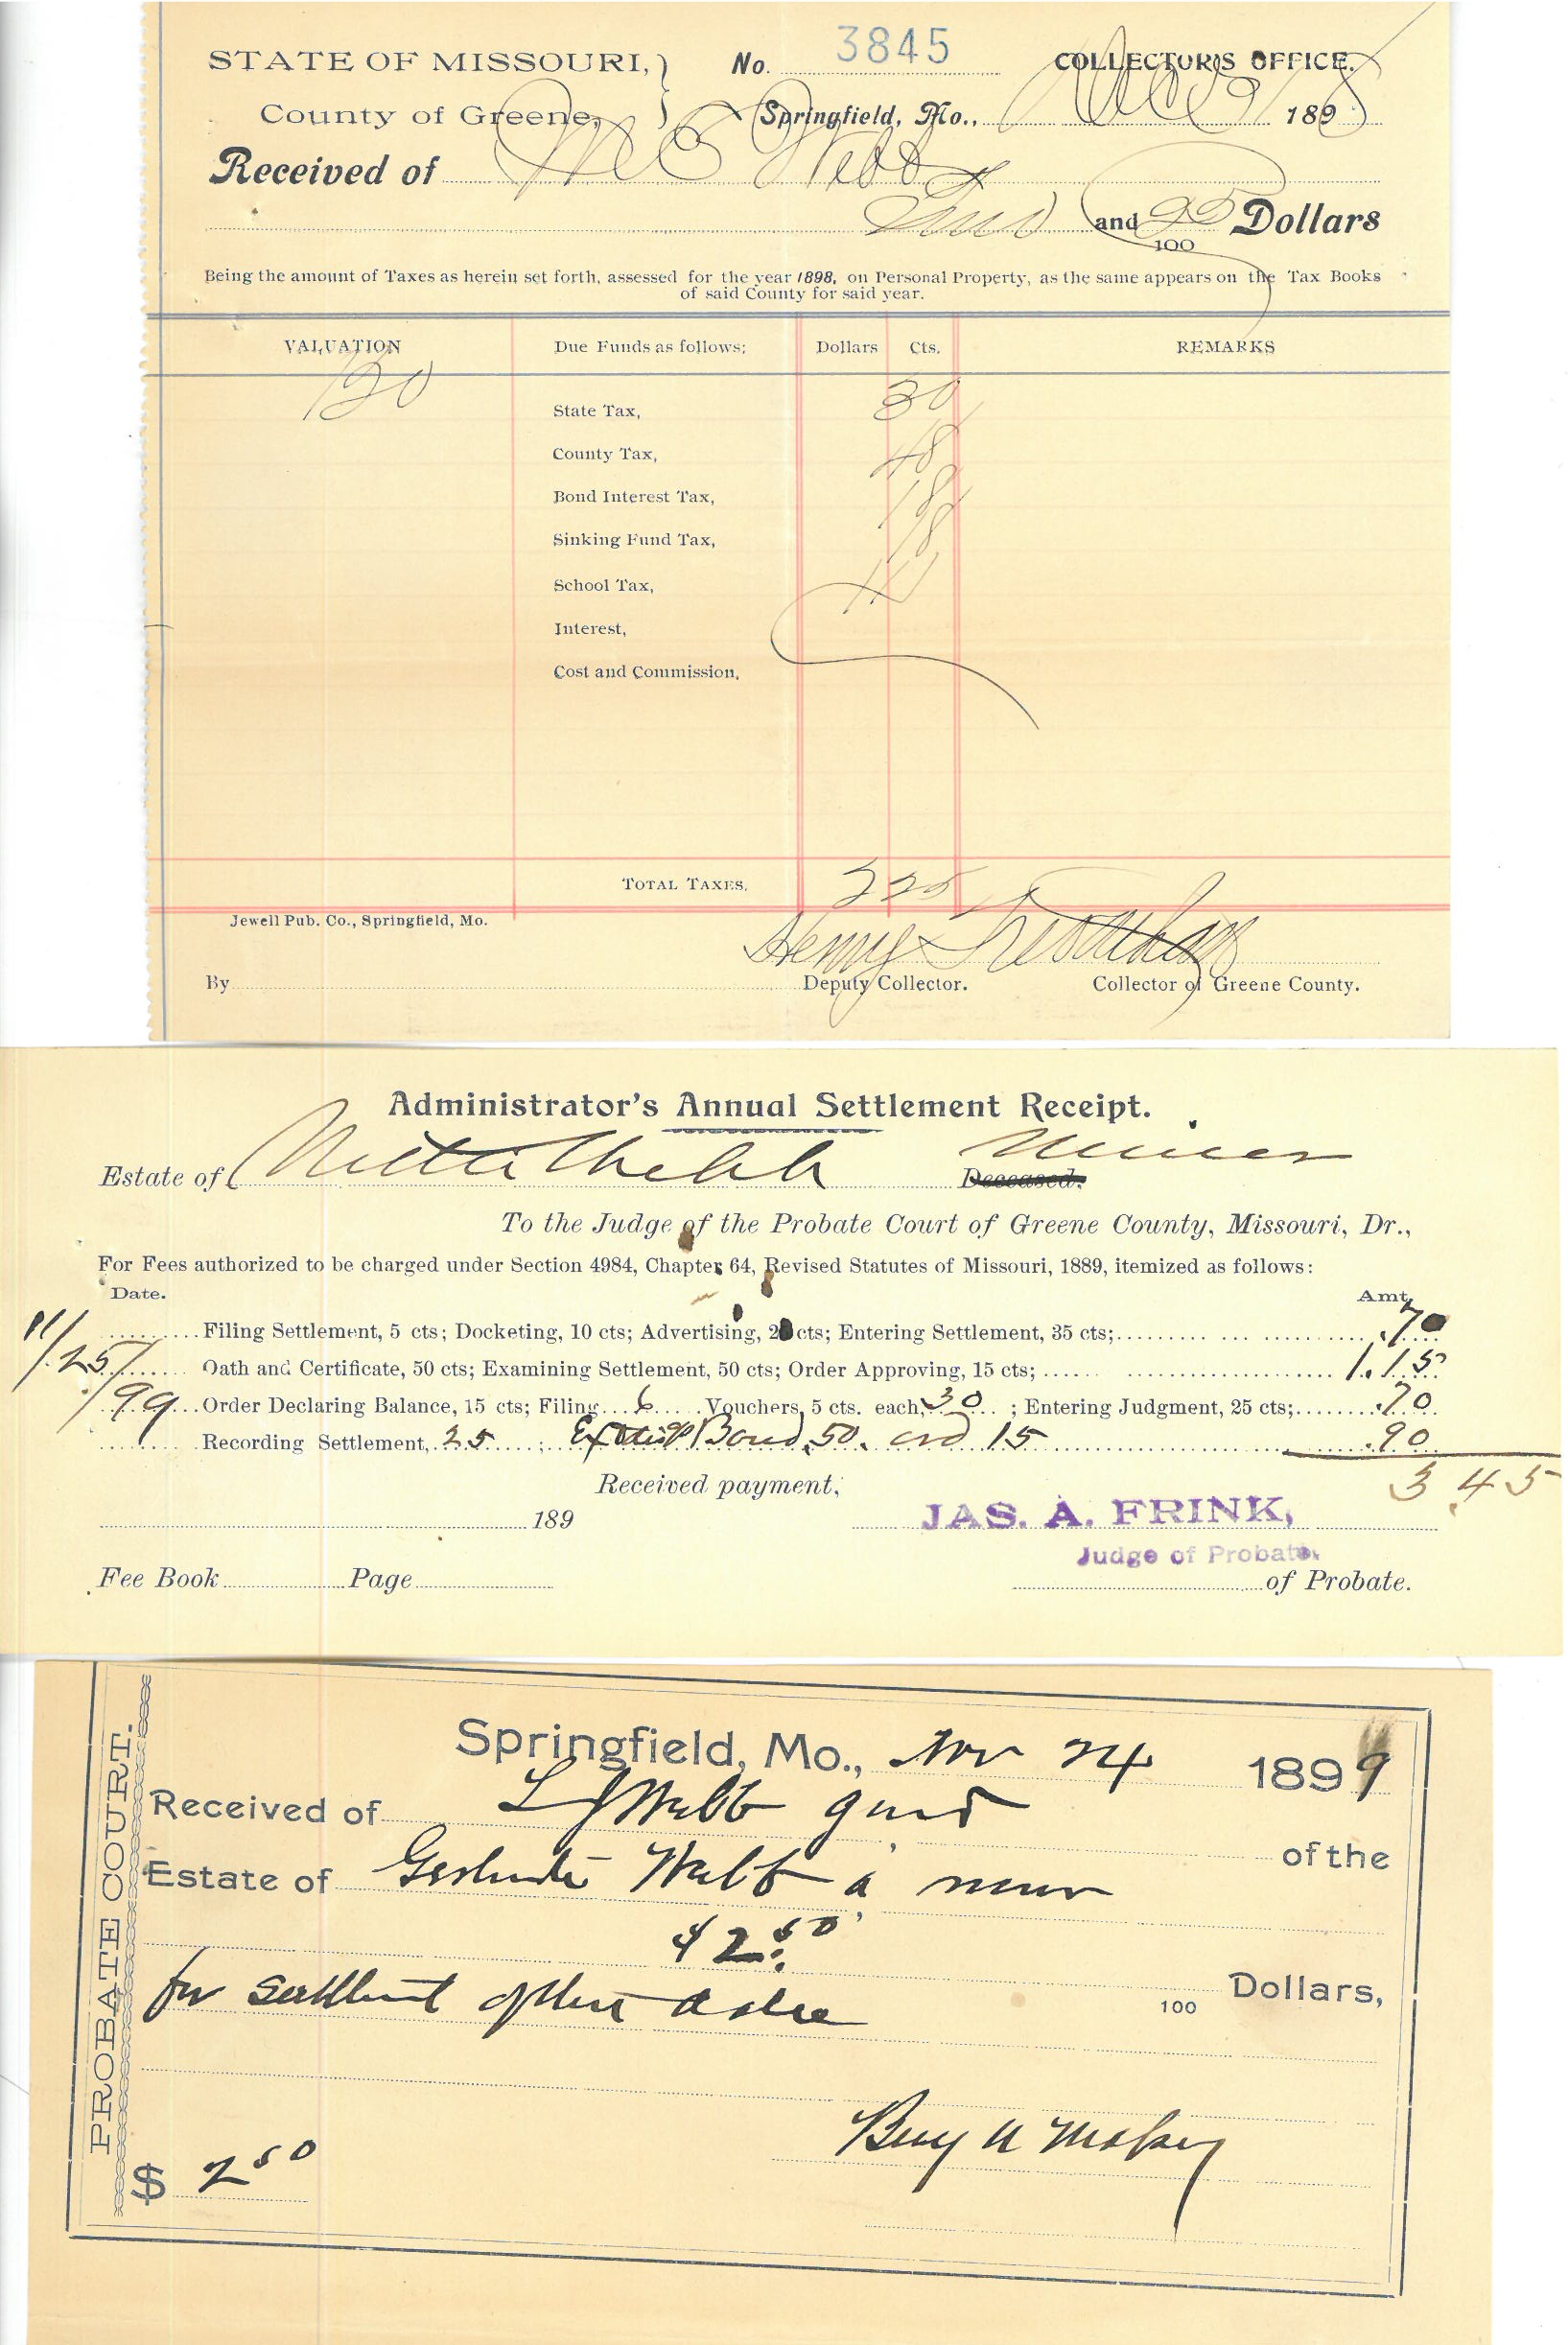 STATE OF MISSOURI, } No. 3845 COLLECTOR'S OFFICE.
County of Greene, } Springfield, Mo., Dec 9 1898
Received of M E Webb
Two and 25/100 Dollars
Being the amount of Taxes as herein set forth, assessed for the year 1898, on Personal Property, as the same appears on the Tax Books
of said County for said year.
VALUATION Due Funds as follows: Dollars Cts. REMARKS
120
State Tax, 30
County Tax, 48
Bond Interest Tax, 18
Sinking Fund Tax, 18
School Tax,
Interest,
Cost and Commission,
TOTAL TAXES, 2 25
Jewell Pub. Co., Springfield, Mo.
Henry
By Deputy Collector. Collector of Greene County.
Administrator's Annual Settlement Receipt.
Estate of Webb Minor Deceased.
To the Judge of the Probate Court of Greene County, Missouri, Dr.,
For Fees authorized to be charged under Section 4984, Chapter 64, Revised Statutes of Missouri, 1889, itemized as follows:
Date. Amt.
11/ Filing Settlement, 5 cts; Docketing, 10 cts; Advertising, 20 cts; Entering Settlement, 35 cts; .70
/25/ Oath and Certificate, 50 cts; Examining Settlement, 50 cts; Order Approving, 15 cts; 1.15
/99 Order Declaring Balance, 15 cts; Filing 6 Vouchers, 5 cts. each, 30 ; Entering Judgment, 25 cts; .70
Recording Settlement, 25 ; Bond, 50. ord 15 .90
3.45
Received payment,
189 JAS. A. FRINK,
Judge of Probate.
Fee Book Page of Probate.
PROBATE COURT.
Springfield, Mo., Nov 24 1899
Received of L J Webb gurd
of the
Estate of Gertrude Webb a minor
$2.50
for settlement of this date 100 Dollars,
Benj U Massey
$ 2 50